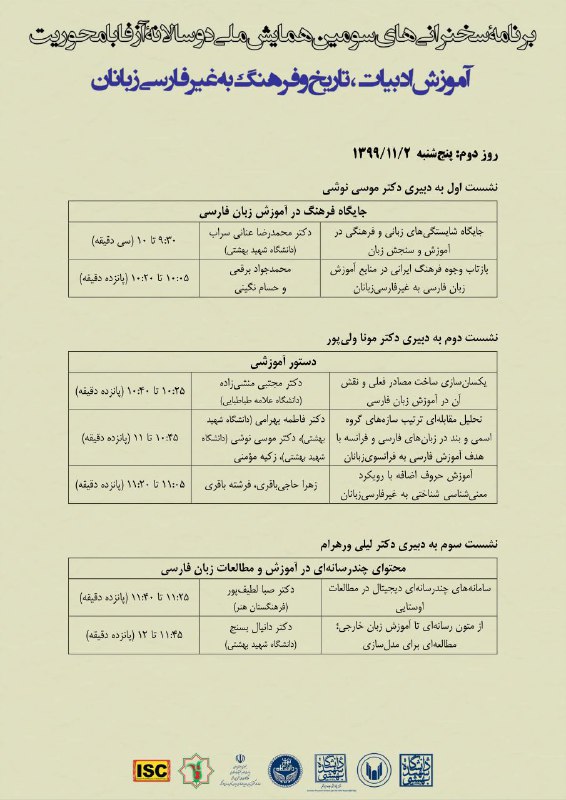 برنامهٔ سخنرانی‌های سومین همایش ملی دوسالانهٔ آزفا با محوریت
آموزش ادبیات، تاریخ و فرهنگ به غیرفارسی‌زبانان
روز دوم: پنج‌شنبه ۱۳۹۹/۱۱/۲
نشست اول به دبیری دکتر موسی نوشی
جایگاه فرهنگ در آموزش زبان فارسی
جایگاه شایستگی‌های زبانی و فرهنگی در
آموزش و سنجش زبان
دکتر محمدرضا عنانی سراب
(دانشگاه شهید بهشتی)
۹:۳۰ تا ۱۰ (سی دقیقه)
بازتاب وجوه فرهنگ ایرانی در منابع آموزش
زبان فارسی به غیرفارسی‌زبانان
محمدجواد برقعی
و حسام نگینی
۱۰:۰۵ تا ۱۰:۲۰ (پانزده دقیقه)
نشست دوم به دبیری دکتر مونا ولی‌پور
دستور آموزشی
یکسان‌سازی ساخت مصادر فعلی و نقش
آن در آموزش زبان فارسی
دکتر مجتبی منشی‌زاده
(دانشگاه علامه طباطبایی)
۱۰:۲۵ تا ۱۰:۴۰ (پانزده دقیقه)
تحلیل مقابله‌ای ترتیب سازه‌های گروه
اسمی و بند در زبان‌های فارسی و فرانسه با
هدف آموزش فارسی به فرانسوی‌زبانان
دکتر فاطمه بهرامی (دانشگاه شهید
بهشتی)، دکتر موسی نوشی (دانشگاه
شهید بهشتی)، زکیه مؤمنی
۱۰:۴۵ تا ۱۱ (پانزده دقیقه)
آموزش حروف اضافه با رویکرد
معنی‌شناسی شناختی به غیرفارسی‌زبانان
زهرا حاجی‌باقری، فرشته باقری
۱۱:۰۵ تا ۱۱:۲۰ (پانزده دقیقه)
نشست سوم به دبیری دکتر لیلی ورهرام
محتوای چندرسانه‌ای در آموزش و مطالعات زبان فارسی
سامانه‌های چندرسانه‌ای دیجیتال در مطالعات
اوستایی
دکتر صبا لطیف‌پور
(فرهنگستان هنر)
۱۱:۲۵ تا ۱۱:۴۰ (پانزده دقیقه)
از متون رسانه‌ای تا آموزش زبان خارجی:
مطالعه‌ای برای مدل‌سازی
دکتر دانیال بسنج
(دانشگاه شهید بهشتی)
۱۱:۴۵ تا ۱۲ (پانزده دقیقه)
ISC